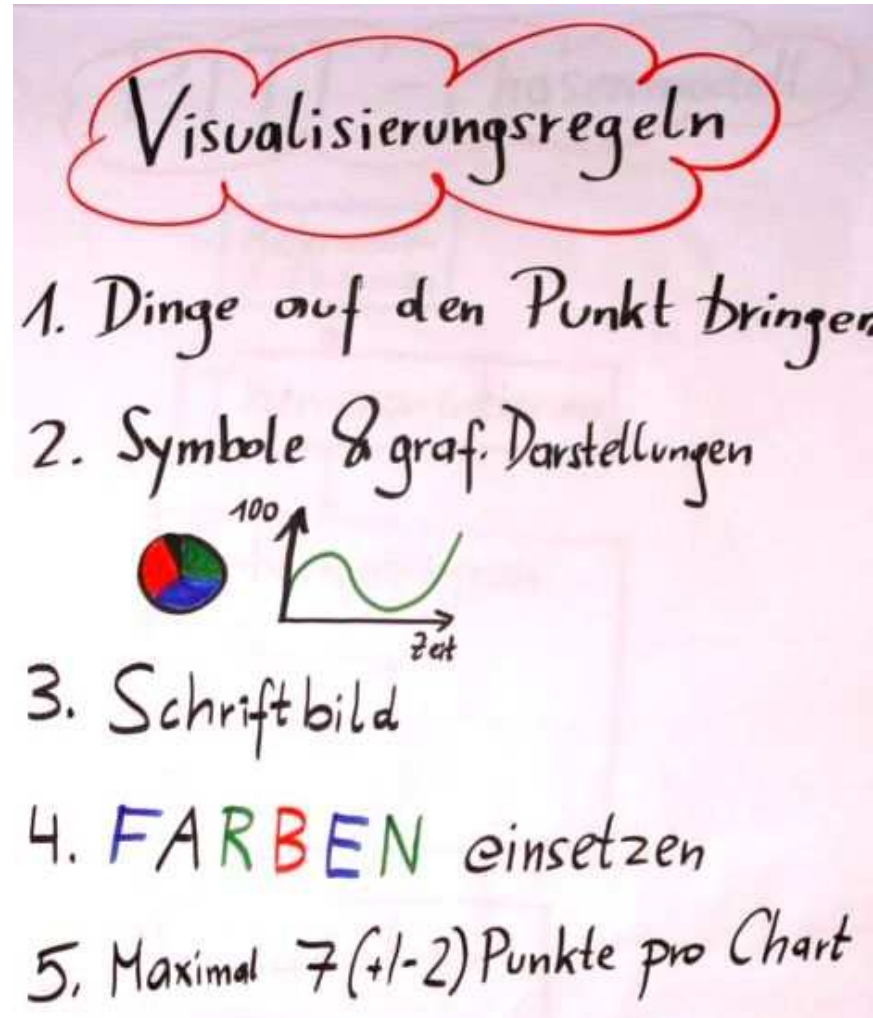 Visualisierungsregeln
1. Dinge auf den Punkt bringen
2. Symbole & graf. Darstellungen
100
Zeit
3. Schriftbild
4. FARBEN einsetzen
5. Maximal 7 (+/-2) Punkte pro Chart